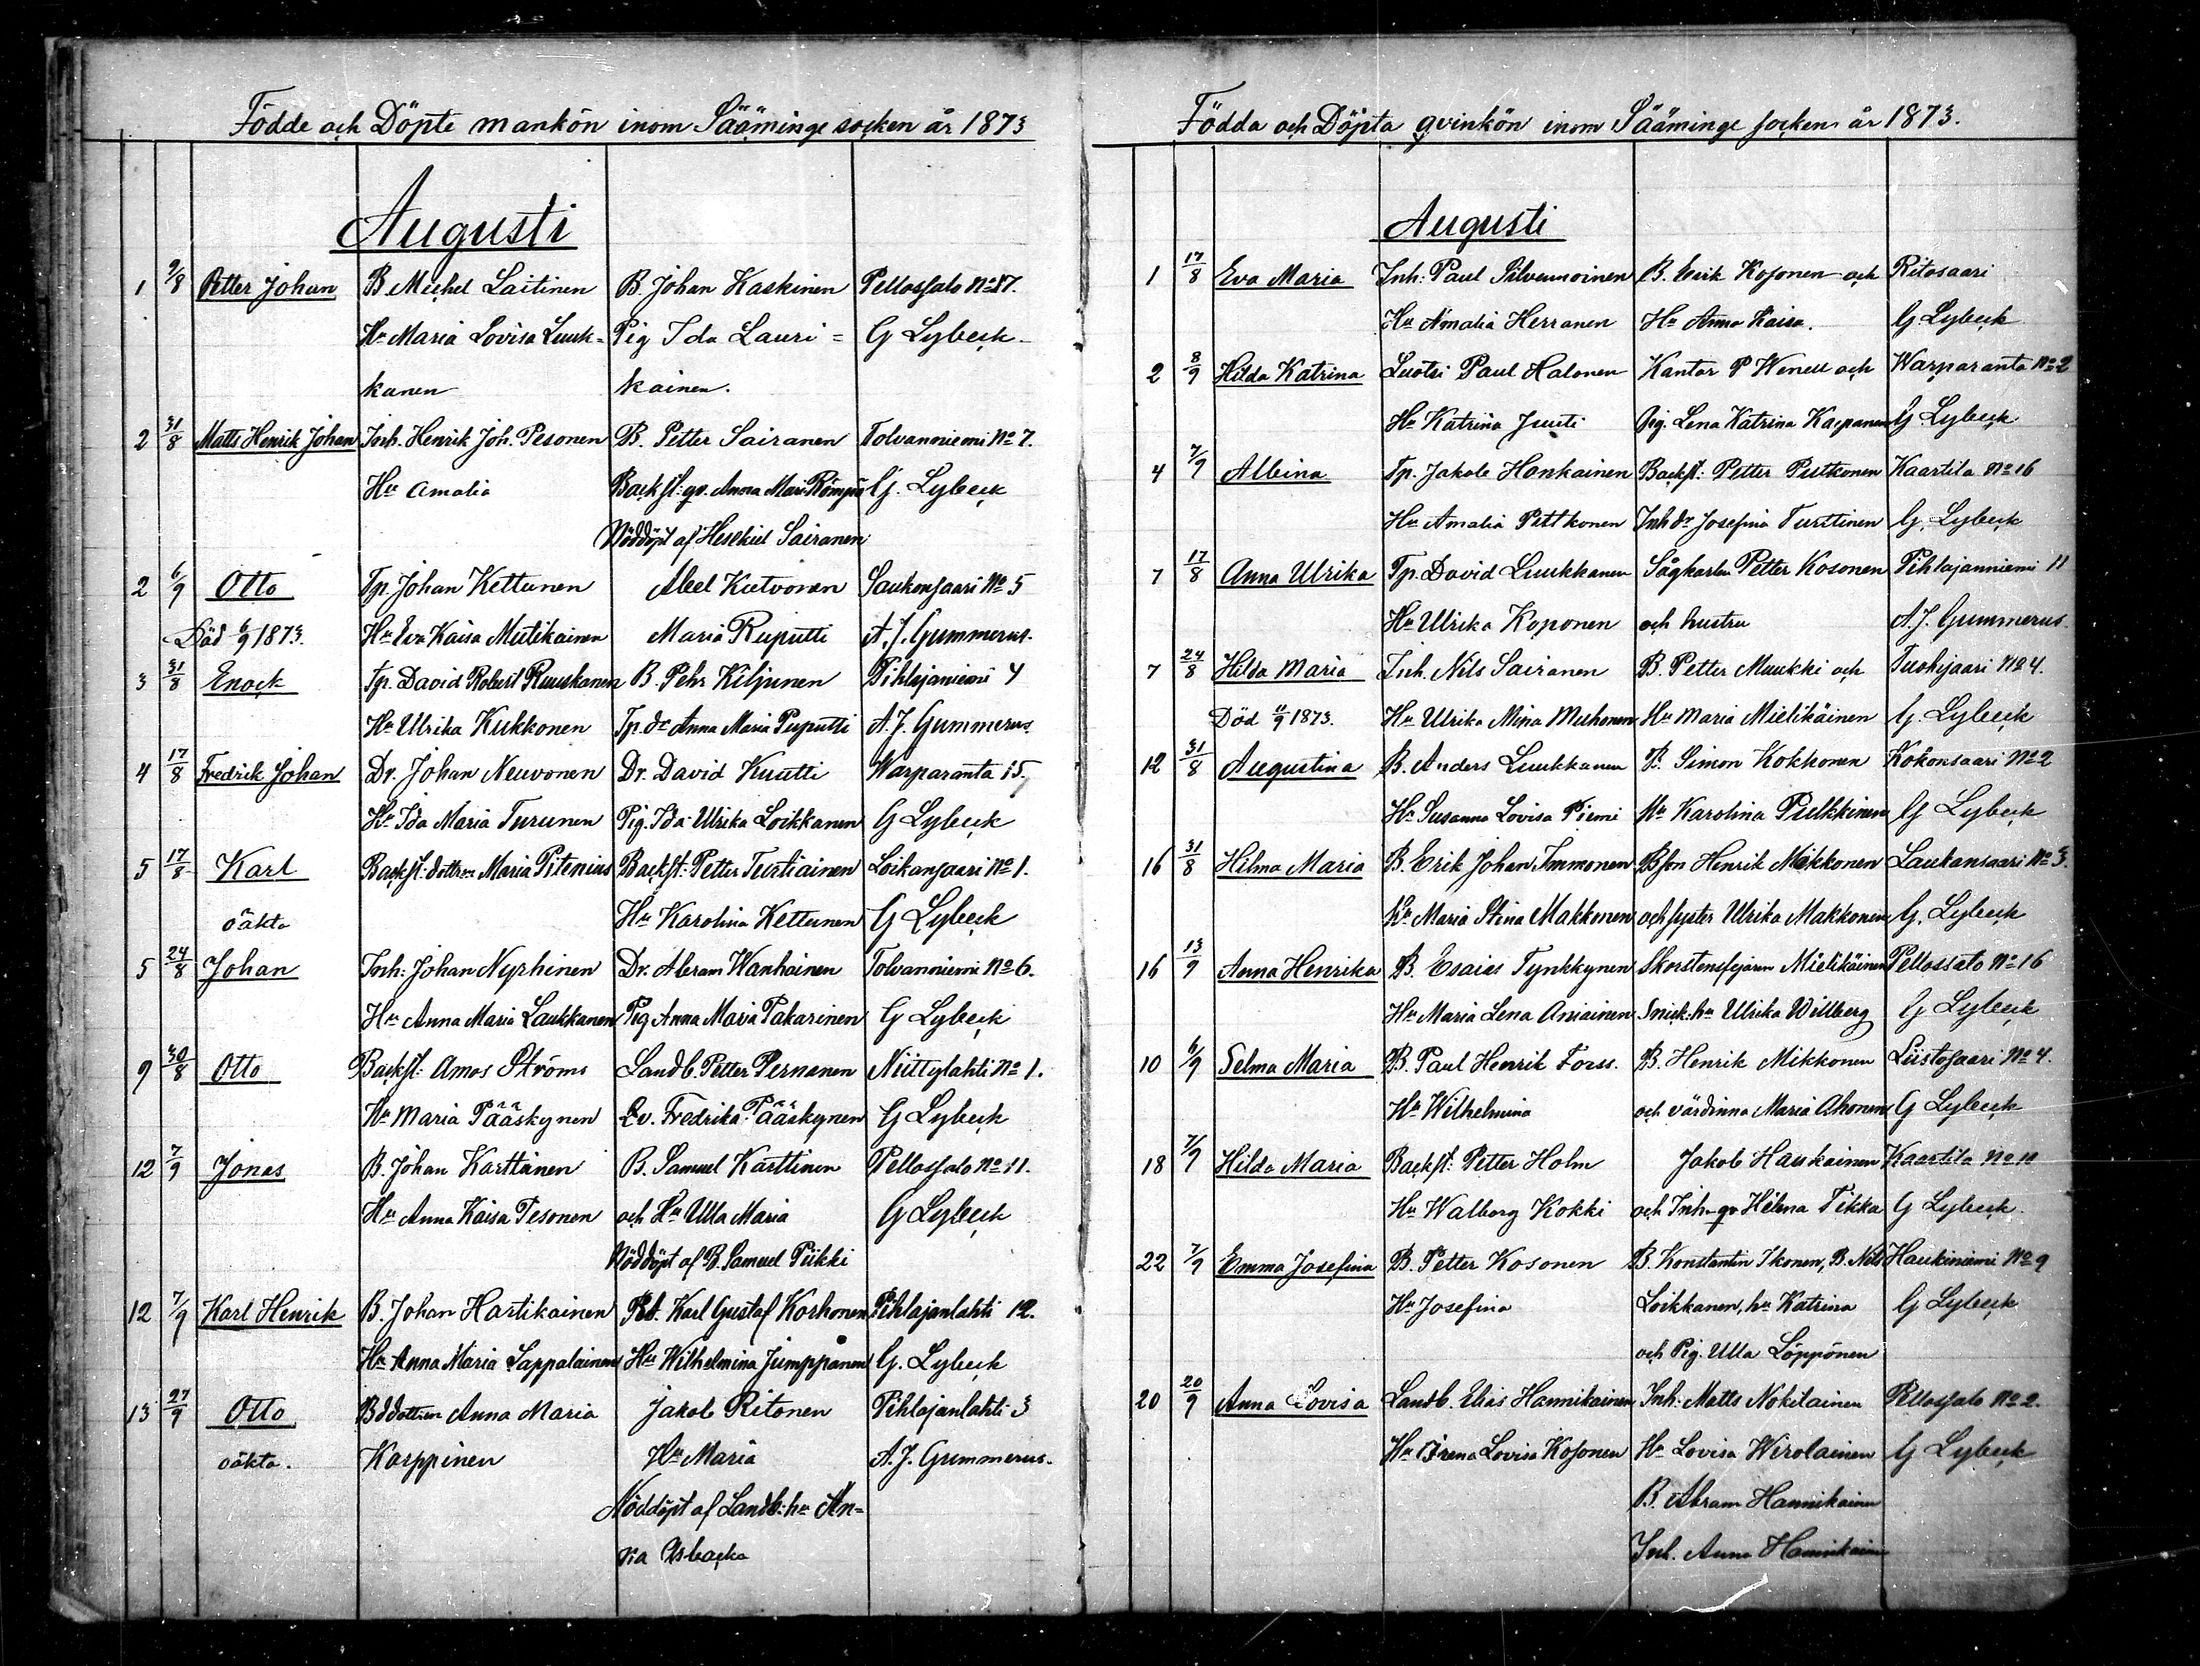 Födde och Döpte mankön inom Sääminge socken år 1873
Augusti
1 9/8 Petter Johan B. Michel Laitinen B. Johan Kaskinen Pellossalo No 17.
Hu Maria Lovisa Luuk- Pig Ida Lauri= G Lybeck
kanen kainen.
2 31/8 Matts Henrik Johan Inh. Henrik Joh. Pesonen B. Petter Sairanen Tolvanniemi No 7.
Hu Amalia Backst: qv. Anna Mari G. Lybeck
Nöddöpt af Hesekiel Sairanen
2 6/9 Otto Tp. Johan Kettunen Abel Kutvonen Saukonsaari No 5
Död 6/9 1873. Hu Eva Kaisa Mutikainen Maria Reputti A. J. Gummerus.
3 31/8 Enock Tp. David Robert Ruuskanen B. Pehr Kiljunen Pihlajaniemi 4
Hu Ulrika Kukkonen Tp. dr Anna Maria Puputti A. J. Gummerus
4 17/8 Fredrik Johan Dr. Johan Neuvonen Dr. David Kuutti Warparanta 15.
Hu Ida Maria Turunen Pig. Ida Ulrika Loikkanen G Lybeck
5 17/8 Karl Backst: dottren Maria Pitenius Backst: Petter Turtiainen Loikansaari No 1.
oäkta Hu Karolina Kettunen G Lybeck
5 24/8 Johan Inh: Johan Nyrhinen Dr. Abram Wanhainen Tolvanniemi No 6.
Hu Anna Maria Laukkanen Pig Anna Maria Pakarinen G Lybeck
9 30/8 Otto Backst: Amos Ströms Landb. Petter Pernanen Niittylahti No 1.
Hu Maria Pääskynen Qv. Fredrika Pääskynen G Lybeck
12 7/9 Jonas B. Johan Karttunen B. Samuel Karttinen Pellossalo No 11.
Hu Anna Kaisa Pesonen och Hu Ulla Maria G Lybeck
Nöddöpt af B. Samuel Piikki
12 7/9 Karl Henrik B. Johan Hartikainen Rd. Karl Gustaf Korhonen Pihlajanlahti 12.
Hu Anna Maria Lappalainen Hu Wilhelmina Jumppanen G. Lybeck
13 27/9 Otto Bddottren Anna Maria Jakob Ritonen Pihlajanlahti 3
oäkta. Karppinen Hu Maria A. J. Gummerus.
Nöddöpt af Landb: hu An=
na Asbacka
Födda och Döpta qvinkön inom Sääminge socken år 1873.
Augusti
1 17/8 Eva Maria Inh: Paul Silvennoinen B. Erik Kosonen och Ritosaari
Hu Amalia Herranen Hu Anna Kaisa. G. Lybeck
2 8/9 Hilda Katrina Luotsi Paul Halonen Kantor P Wenell och Warparanta No 2
Hu Katrina Juuti Pig. Lena Katrina Kaipanen G Lybeck
4 7/9 Albina Tp. Jakob Honkainen Backst: Petter Puttkonen Kaartila No 16
Hu Amalia Puttkonen Inh dr Josefina Turttinen G. Lybeck
7 17/8 Anna Ulrika Tp. David Luukkanen Sågkarlen Petter Kosonen Pihlajanniemi 11
Hu Ulrika Koponen och hustru A. J. Gummerus.
7 24/8 Hilda Maria Inh. Nils Sairanen B. Petter Muukki och Tuohisaari No 4.
Död 11/9 1873. Hu Ulrika Mina Muhonen Hu Maria Mielikäinen G. Lybeck
12 31/8 Augustina B. Anders Luukkanen B. Simon Kokkonen Kokonsaari No 2
Hu Susanna Lovisa Piimi Hu Karolina Pulkkinen G Lybeck
16 31/8 Hilma Maria B. Erik Johan Immonen Bson Henrik Makkonen Laukansaari No 3.
Hu Maria Stina Makkonen och syster Ulrika Makkonen G. Lybeck
16 13/9 Anna Henrika B. Esaias Tynkkynen Skorstensfejaren Mielikäinen Pellossalo No 16
Hu Maria Lena Aniainen Snick: hu Ulrika Willberg G Lybeck
10 6/9 Selma Maria B. Paul Henrik Forss. B. Henrik Mikkonen Liistosaari No 4.
Hu Wilhelmina och värdinna Maria Ahonen G Lybeck
18 7/9 Hilda Maria Backst: Petter Holm Jakob Haukainen Kaartila No 10
Hu Walborg Kokki och Inh. qv Helena Tikka G Lybeck.
22 7/9 Emma Josefina B. Petter Kosonen B. Konstantin Ikonen, B. Nils Haukiniemi No 9
Hu Josefina Loikkanen, hu Katrina G Lybeck
och Pig. Ulla Löppönen
20 20/9 Anna Lovisa Landb. Elias Hannikainen Inh: Matts Nokelainen Pellossalo No 2.
Hu Irena Lovisa Kosonen Hu Lovisa Wirolainen G Lybeck
B. Abram Hannikainen
Inh. Anna Hannikainen